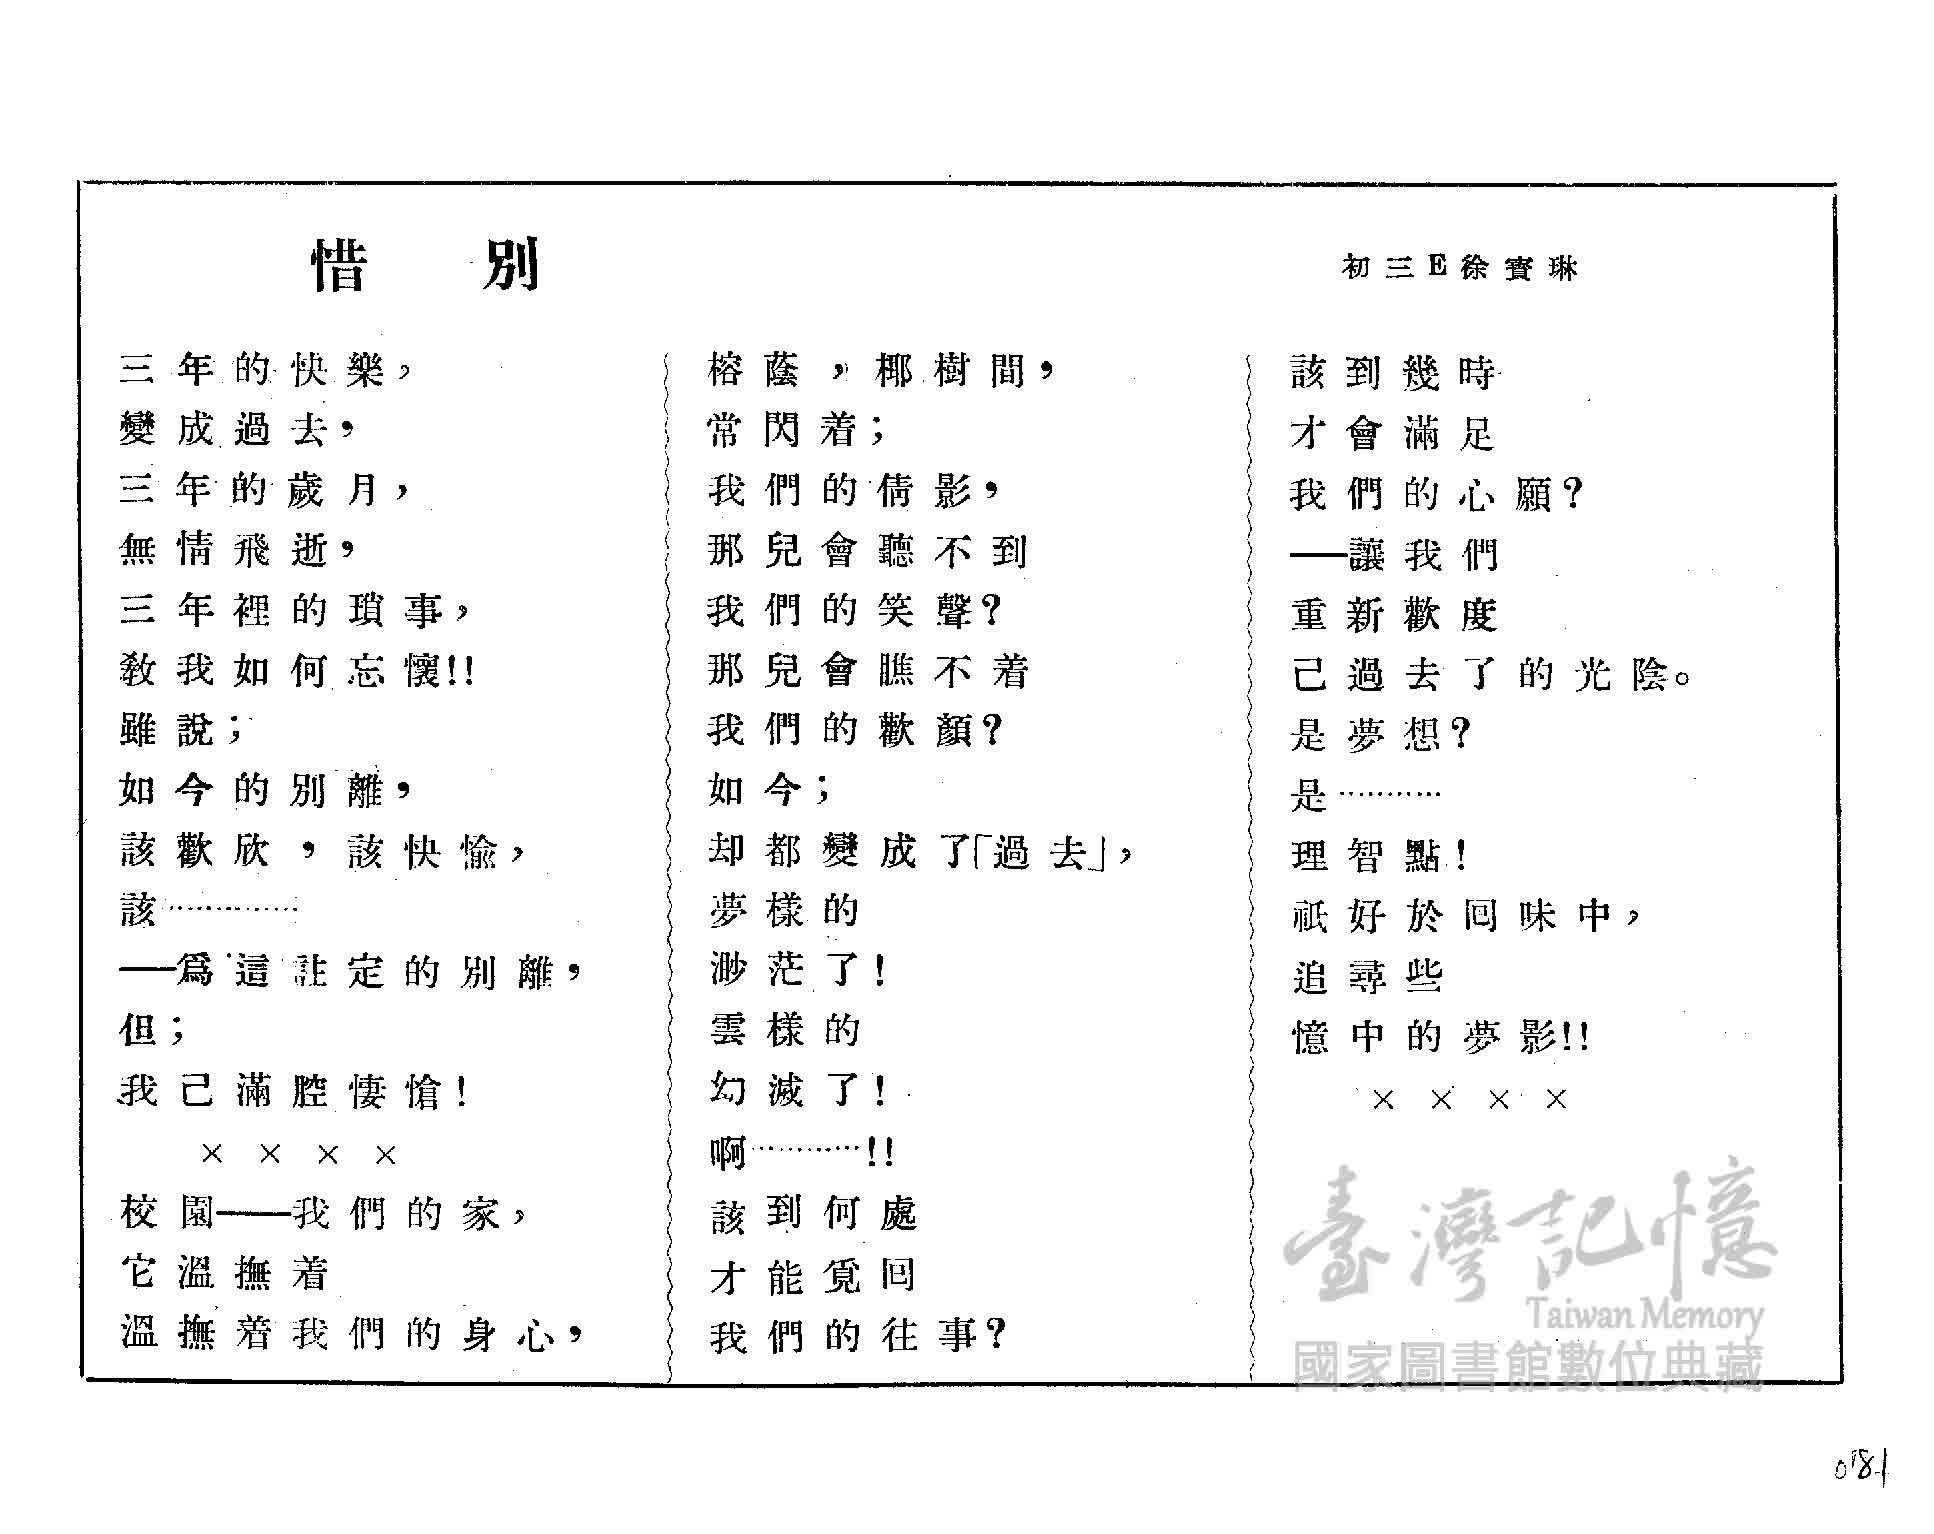 惜別
初三E徐寶琳
三年的快樂，
變成過去，
三年的歲月，
無情飛逝，
三年裡的瑣事，
敎我如何忘懷!!
雖說；
如今的別離，
該歡欣，該快愉，
該…………
──爲這註定的別離，
但；
我己滿腔悽愴！
××××
校園──我們的家，
它溫撫着
溫撫着我們的身心，
榕蔭，椰樹間，
常閃着；
我們的倩影，
那兒會聽不到
我們的笑聲？
那兒會瞧不着
我們的歡顏？
如今；
却都變成了「過去」，
夢樣的
渺茫了！
雲樣的
幻滅了！
啊…………!!
該到何處
才能覓回
我們的往事？
該到幾時
才會滿足
我們的心願？
──讓我們
重新歡度
己過去了的光陰。
是夢想？
是…………
理智點！
祇好於回味中，
追尋些
憶中的夢影!!
××××
臺灣記憶
Taiwan Memory
國家圖書館數位典藏
081